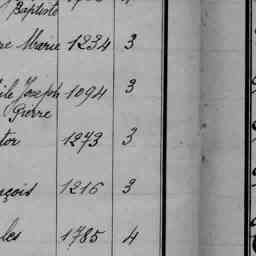 Baptiste
re Marie 1234 3
ile Joseph 1094 3
Pierre
tor 1273 3
nçois 1216 3
les 1785 4